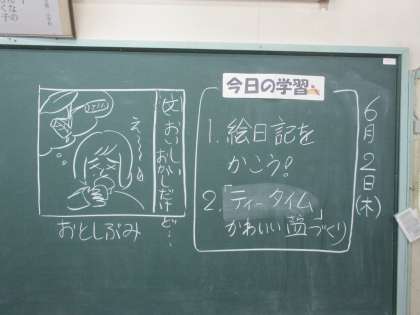 6月2日(木)
今日の学習
1. 絵日記を
かこう!
2.「ティータイム」
かわいい皿づくり
おいしい
おかしだけど…
え〜
おとしぶみ